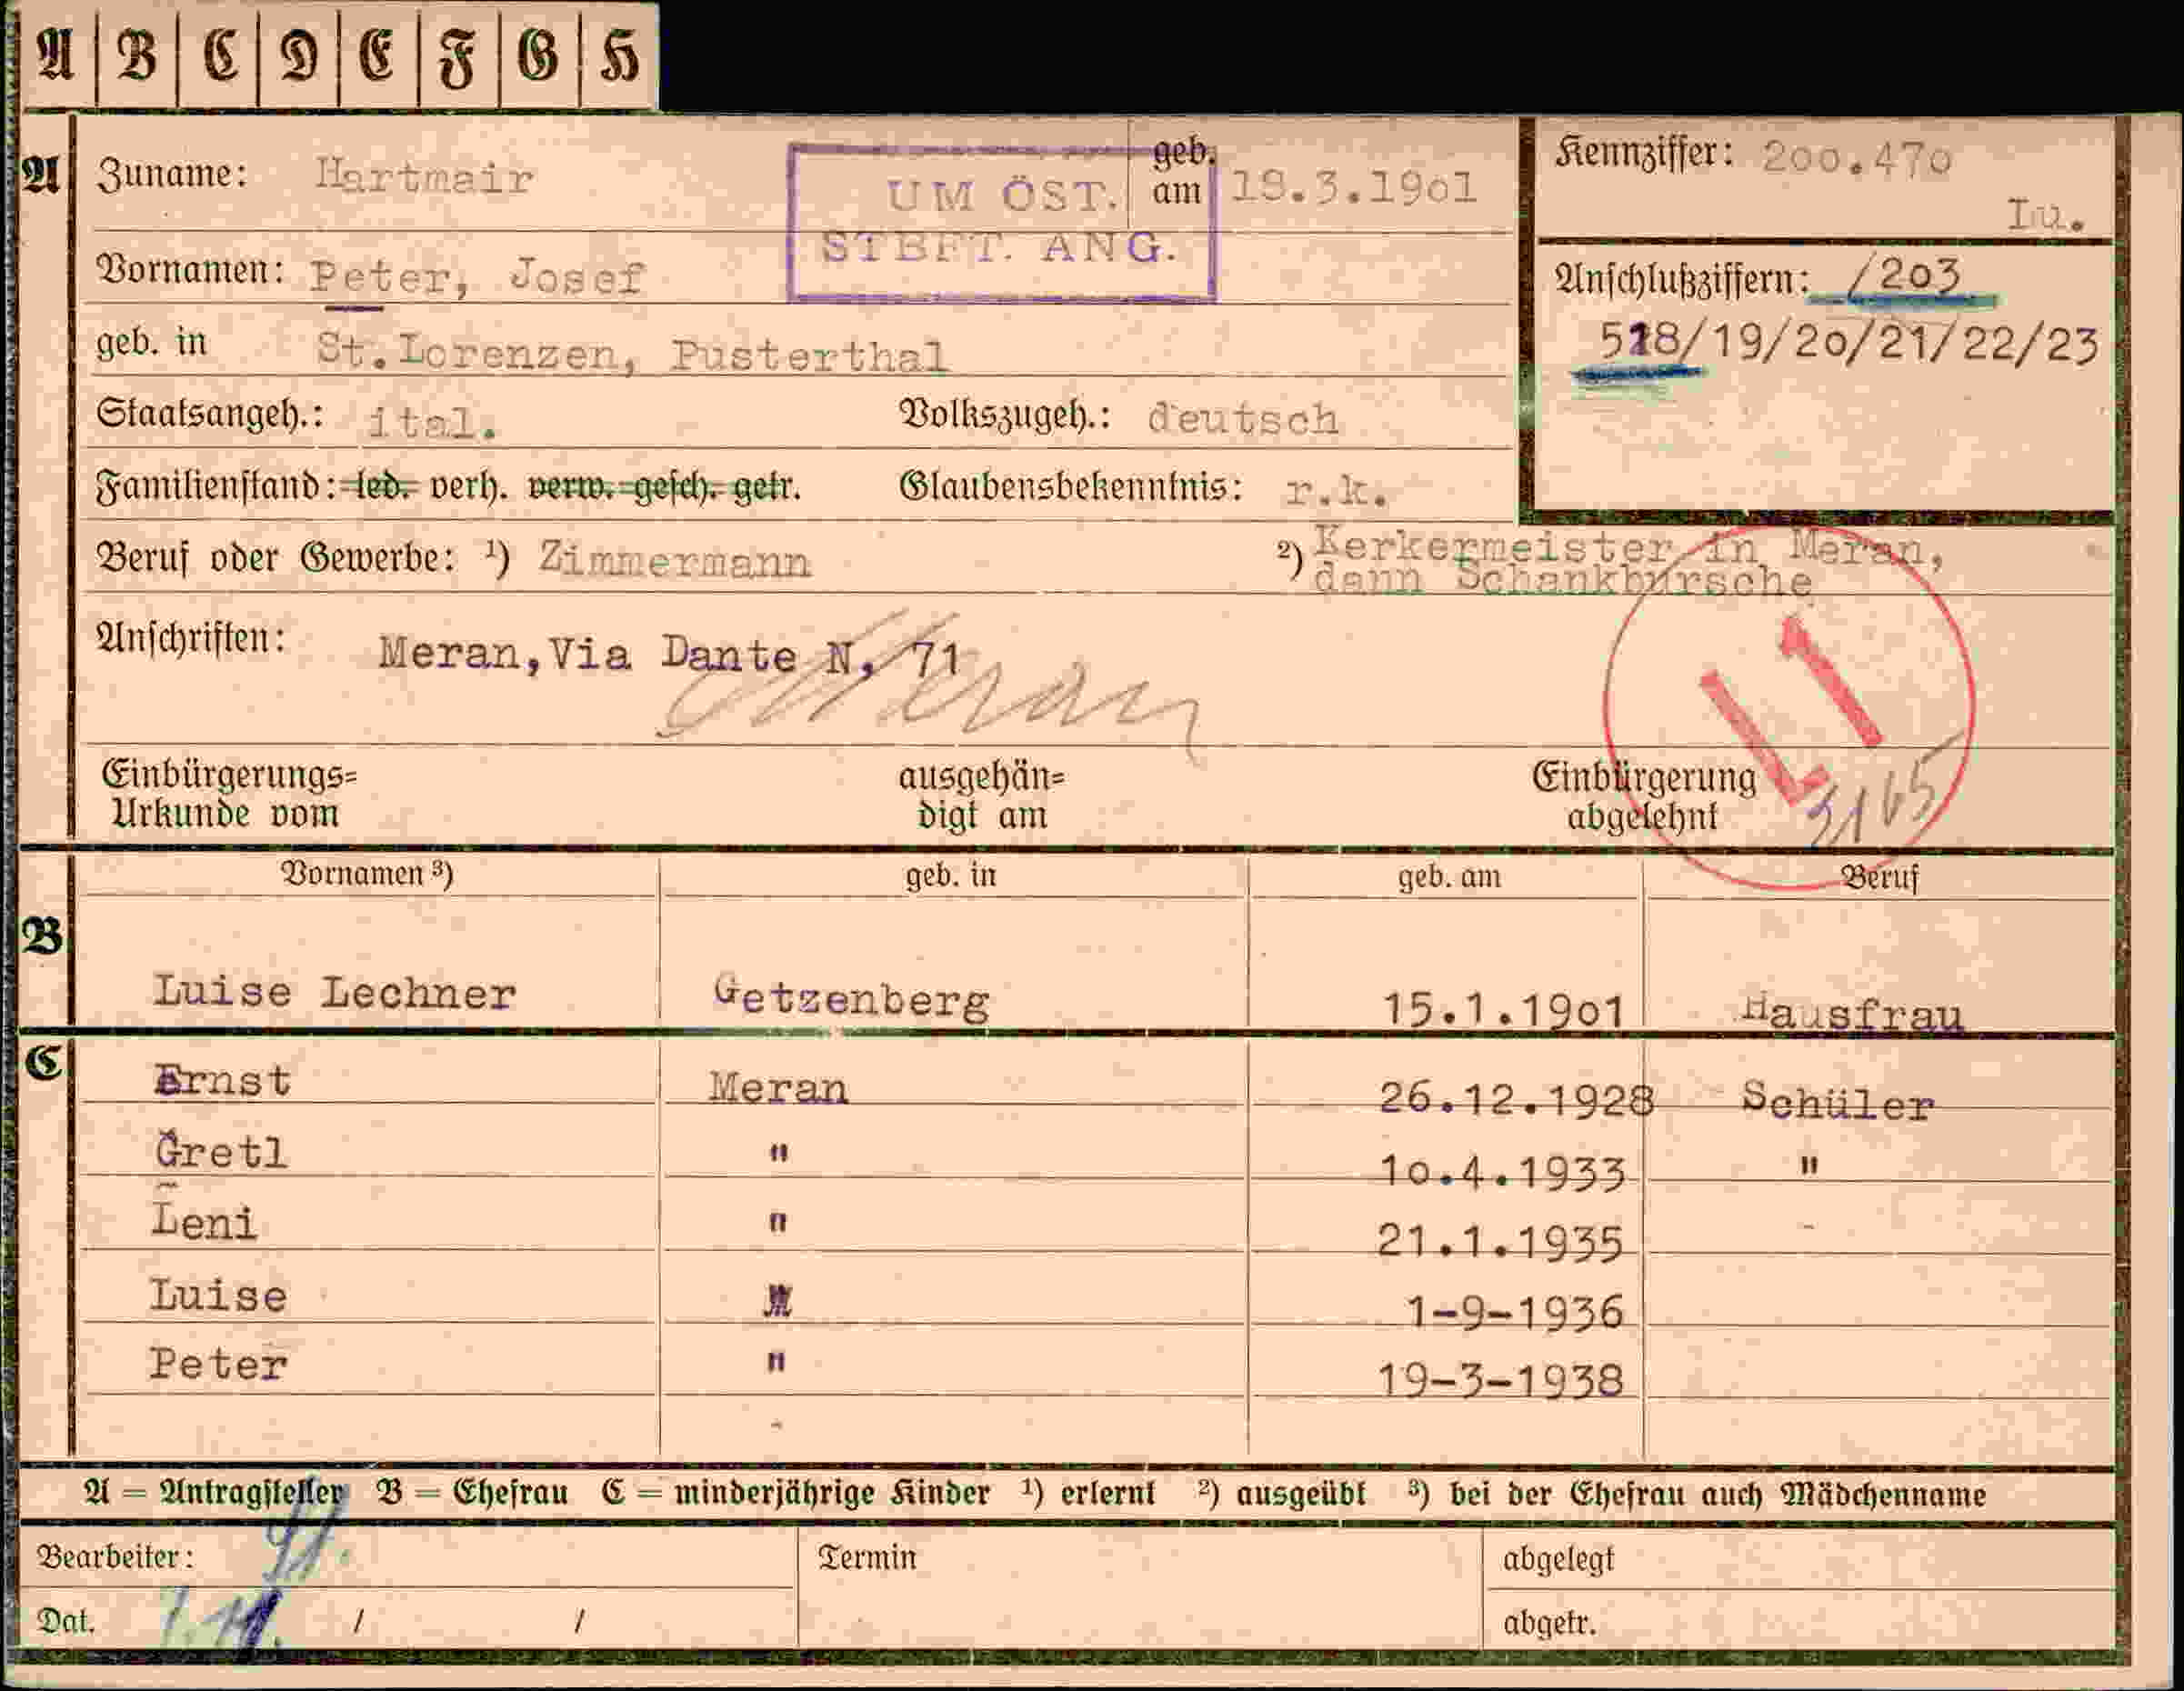 A B C D E F G H
A Zuname: Hartmair geb. am 19.3.1901
UM ÖST. STBFT. ANG.
Kennziffer: 200.470
Lu.
Vornamen: Peter, Josef
Anschlußziffern: /203
518/19/20/21/22/23
geb. in St.Lorenzen, Pusterthal
Staatsangeh.: ital. Volkszugeh.: deutsch
Familienstand: led. verh. verw. gesch. getr. Glaubensbekenntnis: r.k.
Beruf oder Gewerbe: 1) Zimmermann 2) Kerkermeister in Meran,
dann Schankbursche
Anschriften: Meran,Via Dante N. 71
Meran
L1
3165
Einbürgerungs= ausgehän= Einbürgerung
Urkunde vom digt am abgelehnt
Vornamen 3) geb. in geb. am Beruf
B
Luise Lechner Getzenberg 15.1.1901 Hausfrau
C Ernst Meran 26.12.1928 Schüler
Gretl " 10.4.1933 "
Leni " 21.1.1935 -
Luise " 1-9-1936
Peter " 19-3-1938
A = Antragsteller B = Ehefrau C = minderjährige Kinder 1) erlernt 2) ausgeübt 3) bei der Ehefrau auch Mädchenname
Bearbeiter: Termin abgelegt
Dat. / / abgetr.